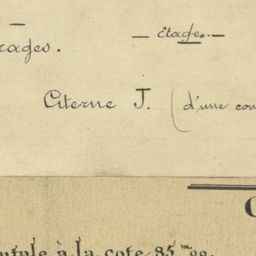 — étage. —
rages.
Citerne J. (d'une con
C
ntale à la cote 85m00.